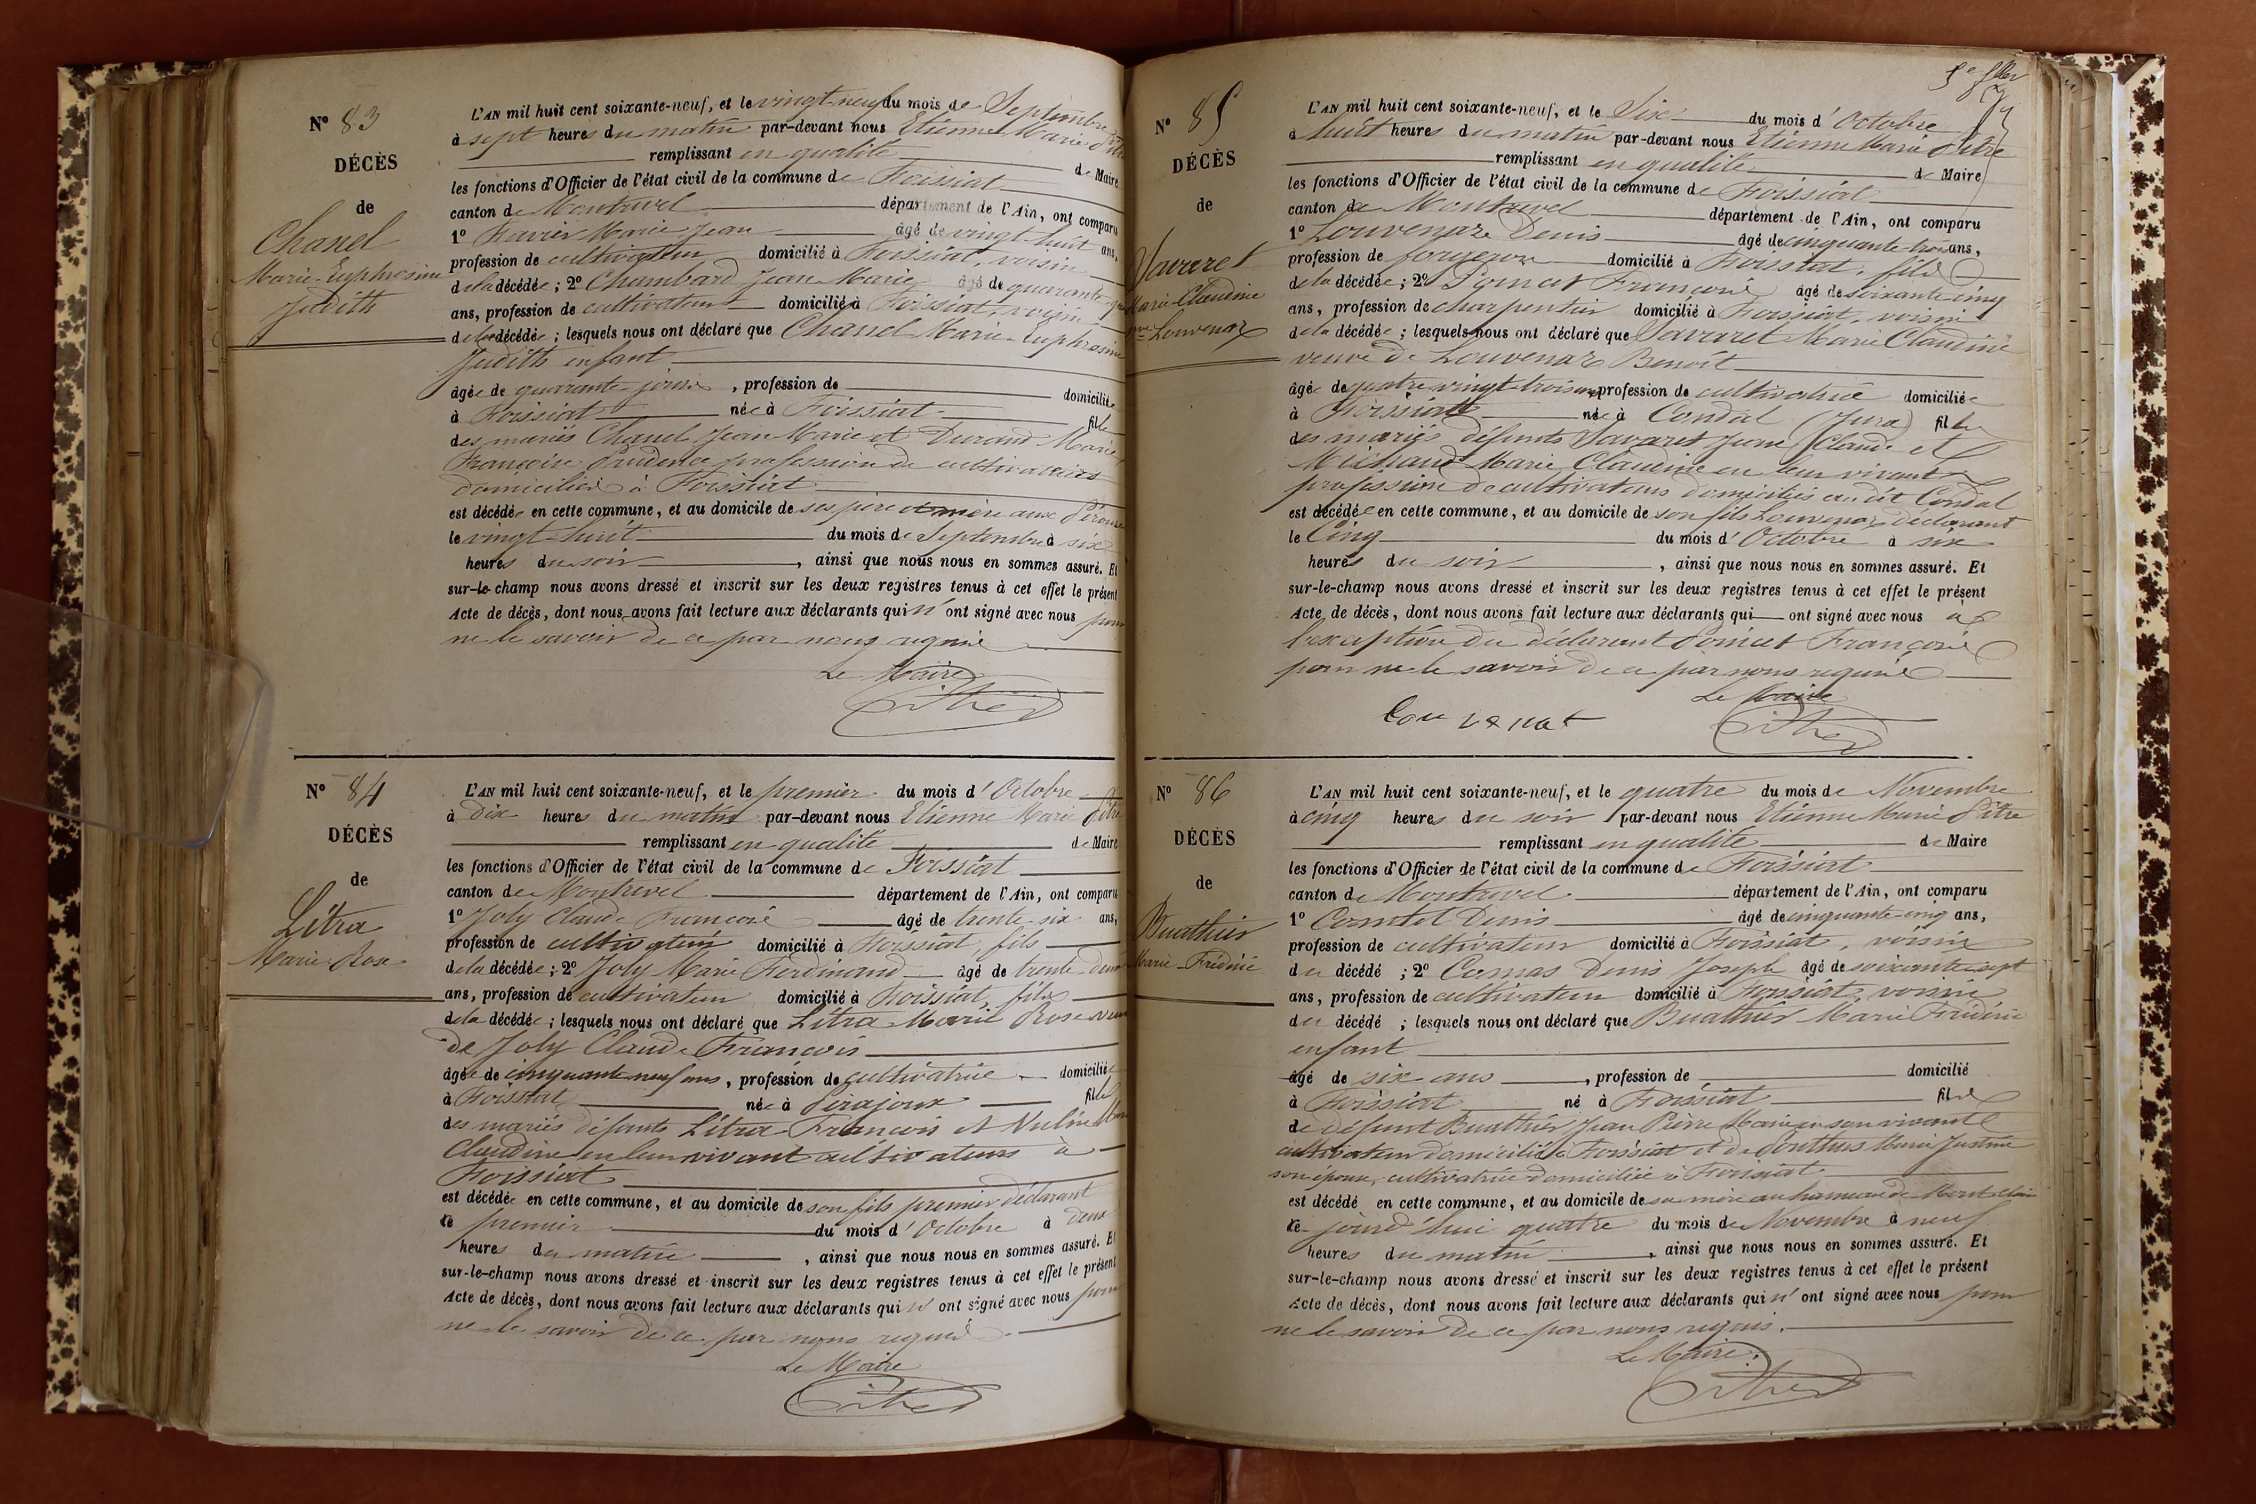 N° 83
DÉCÈS
de
Chanel
Marie-Euphrosine
Judith
L'AN mil huit cent soixante-neuf, et le vingt-neuf du mois de Septembre
à sept heures du matin par-devant nous Etienne Marie Pitre
remplissant en qualité de Maire
les fonctions d'Officier de l'état civil de la commune de Foissiat
canton de Montrevel département de l'Ain, ont comparu
1° Marie Jean âgé de vingt-huit ans,
profession de cultivateur domicilié à Foissiat, voisin
de la décédée; 2° Chambard Jean Marie âgé de quarante
ans, profession de cultivateur domicilié à Foissiat, voisin
de la décédée; lesquels nous ont déclaré que Chanel Marie-Euphrosine
Judith enfant
âgée de quarante-jours, profession de domiciliée
à Foissiat née à Foissiat fille
des mariés Chanel Jean Marie et Durand Marie
Françoise Prudence profession de cultivateurs
domiciliés à Foissiat
est décédée en cette commune, et au domicile de ses père et mère aux
le vingt-huit du mois de Septembre à six
heures du soir, ainsi que nous nous en sommes assuré. Et
sur-le-champ nous avons dressé et inscrit sur les deux registres tenus à cet effet le présent
Acte de décès, dont nous avons fait lecture aux déclarants qui n'ont signé avec nous pour
ne le savoir de ce par nous requis
Le Maire
Pitre
N° 84
DÉCÈS
de
Litra
Marie-Rose
L'AN mil huit cent soixante-neuf, et le premier du mois d'Octobre
à Dix heures du matin par-devant nous Etienne Marie Pitre
remplissant en qualité de Maire
les fonctions d'Officier de l'état civil de la commune de Foissiat
canton de Montrevel département de l'Ain, ont comparu
1° Joly Claude François âgé de trente-six ans,
profession de cultivateur domicilié à Foissiat, fils
de la décédée; 2° Joly Marie Ferdinand âgé de trente-deux
ans, profession de cultivateur domicilié à Foissiat, fils
de la décédée; lesquels nous ont déclaré que Litra Marie Rose veuve
de Joly Claude François
âgée de cinquante-neuf ans, profession de cultivatrice domiciliée
à Foissiat née à Pirajoux fille
des mariés défunts Litra François et
Claudine en leur vivant cultivateurs à
Foissiat
est décédée en cette commune, et au domicile de son fils premier déclarant
le premier du mois d'Octobre à deux
heures du matin, ainsi que nous nous en sommes assuré. Et
sur-le-champ nous avons dressé et inscrit sur les deux registres tenus à cet effet le présent
Acte de décès, dont nous avons fait lecture aux déclarants qui n'ont signé avec nous pour
ne le savoir de ce par nous requis.
Le Maire
Pitre
N° 85
DÉCÈS
de
Savaret
Marie Claudine
Louvenaz
L'AN mil huit cent soixante-neuf, et le Six du mois d'Octobre
à huit heures du matin par-devant nous Etienne Marie Pitre
remplissant en qualité de Maire
les fonctions d'Officier de l'état civil de la commune de Foissiat
canton de Montrevel département de l'Ain, ont comparu
1° Louvenaz Denis âgé de cinquante-trois ans,
profession de forgeron domicilié à Foissiat, fils
de la décédée; 2° François âgé de soixante-cinq
ans, profession de charpentier domicilié à Foissiat, voisin
de la décédée; lesquels nous ont déclaré que Savaret Marie Claudine
veuve de Louvenaz Benoît
âgée de quatre vingt-trois ans, profession de cultivatrice domiciliée
à Foissiat née à Condal (Jura) fille
des mariés défunts Savaret Jean Claude et
Michaud Marie Claudine en leur vivant
profession de cultivateurs domiciliés au dit Condal
est décédée en cette commune, et au domicile de son fils Louvenaz déclarant
le Cinq du mois d'Octobre à six
heures du soir, ainsi que nous nous en sommes assuré. Et
sur-le-champ nous avons dressé et inscrit sur les deux registres tenus à cet effet le présent
Acte de décès, dont nous avons fait lecture aux déclarants qui ont signé avec nous à
l'exception du déclarant François
pour ne le savoir de ce par nous requis
Le Maire
Pitre
N° 86
DÉCÈS
de
Buathier
Marie-Frédéric
L'AN mil huit cent soixante-neuf, et le quatre du mois de Novembre
à cinq heures du soir par-devant nous Etienne Marie Pitre
remplissant en qualité de Maire
les fonctions d'Officier de l'état civil de la commune de Foissiat
canton de Montrevel département de l'Ain, ont comparu
1° Comtet Denis âgé de cinquante-cinq ans,
profession de cultivateur domicilié à Foissiat, voisin
du décédé; 2° Camas Denis Joseph âgé de soixante-sept
ans, profession de cultivateur domicilié à Foissiat, voisin
du décédé; lesquels nous ont déclaré que Buathier Marie Frédéric
enfant
âgé de six ans, profession de domicilié
à Foissiat né à Foissiat fils
de défunt Buathier Jean Pierre Marie en son vivant
cultivateur domicilié à Foissiat et de Marie Justine
son épouse, cultivatrice domiciliée à Foissiat
est décédé en cette commune, et au domicile de sa mère au hameau de
le jourd'hui quatre du mois de Novembre à neuf
heures du matin, ainsi que nous nous en sommes assuré. Et
sur-le-champ nous avons dressé et inscrit sur les deux registres tenus à cet effet le présent
Acte de décès, dont nous avons fait lecture aux déclarants qui n'ont signé avec nous pour
ne le savoir de ce par nous requis.
Le Maire
Pitre